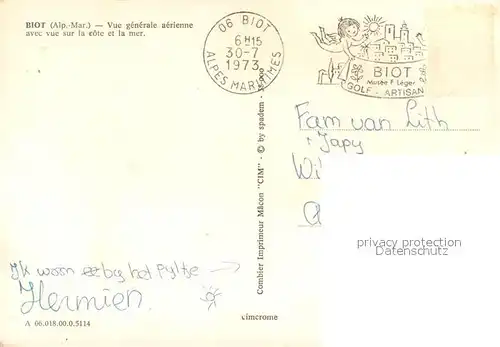 BIOT (Alp.-Mar.) — Vue générale aérienne
avec vue sur la côte et la mer.
06 BIOT
6 H 15
30-7
1973
ALPES MARITIMES
BIOT
Musée F. Léger
GOLF - ARTISAN
Fam van Lith
Japy
Wi
privacy protection
Datenschutz
Ik woon ez by het pyltje →
Hermien.
Combier Imprimeur Mâcon "CIM" - © by spadem -
cimcrome
A 06.018.00.0.5114